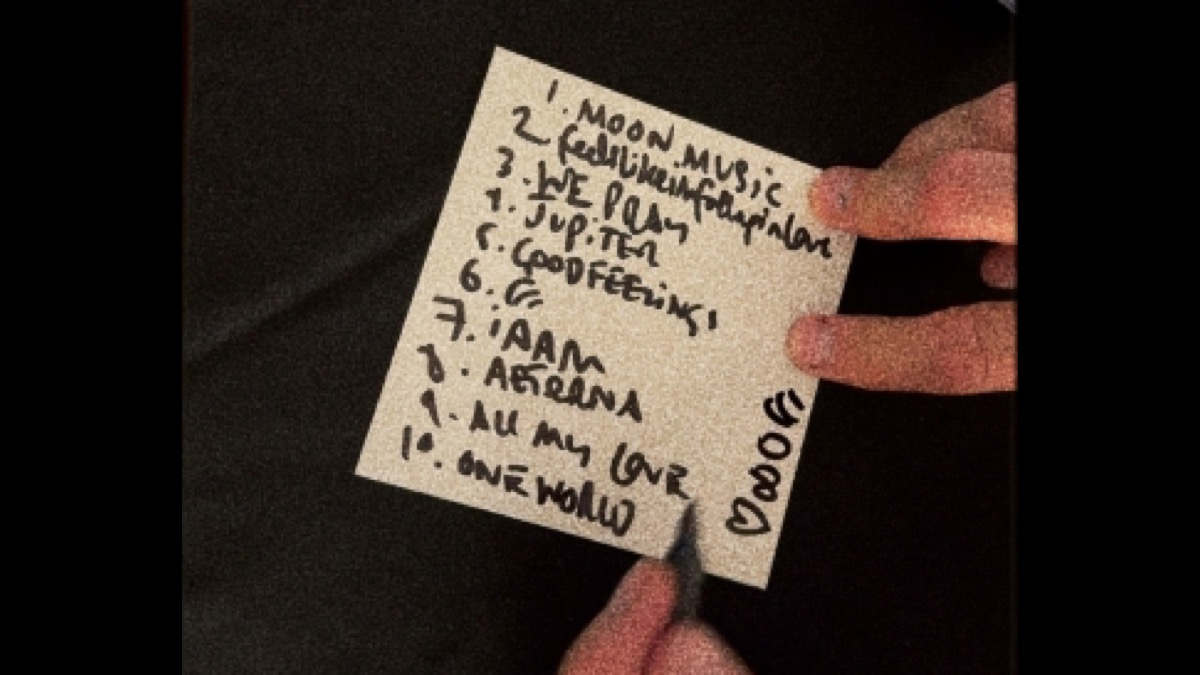 1. MOON MUSiC
2 feelslikeimfallinginlove
3. WE PRAY
4. JUPiTER
5. GOOD FEELiNGS
6. 🌈
7. iAAM
8. AETERNA
9. ALL MY LOVE
10. ONE WORLD